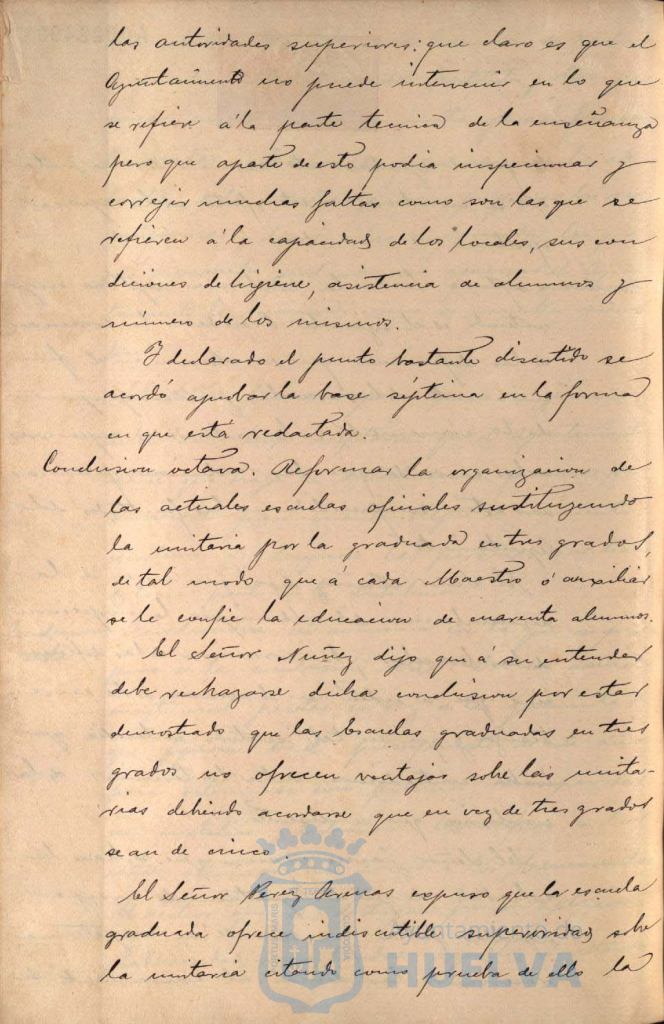 las autoridades superiores: que claro es que el
Ayuntamiento no puede intervenir en lo que
se refiere á la parte tecnica de la enseñanza
pero que aparte de esto podia inspecionar y
corregir muchas faltas como son las que se
refieren á la capacidad de los locales, sus con
diciones de higiene, asistencia de alumnos y
número de los mismos.
Y declarado el punto bastante discutido se
acordó aprobar la base séptima en la forma
en que está redactada.
Conclusion octava. Reformar la organizacion de
las actuales escuelas oficiales sustituyendo
la unitaria por la graduada en tres grados,
de tal modo que á cada Maestro ó auxiliar
se le confie la educacion de cuarenta alumnos.
El Señor Nuñez dijo que á su entender
debe rechazarse dicha conclusion por estar
demostrado que las Escuelas graduadas en tres
grados no ofrecen ventajas sobre las unita-
rias debiendo acordarse que en vez de tres grados
sean de cinco.
El Señor Perez Arenas expuso que la escuela
graduada ofrece indiscutible superioridad sobre
la unitaria citando como prueba de ello la
HUELVA